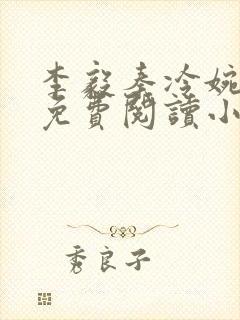 李毅秦冷婉
免費閱讀小
秀良子